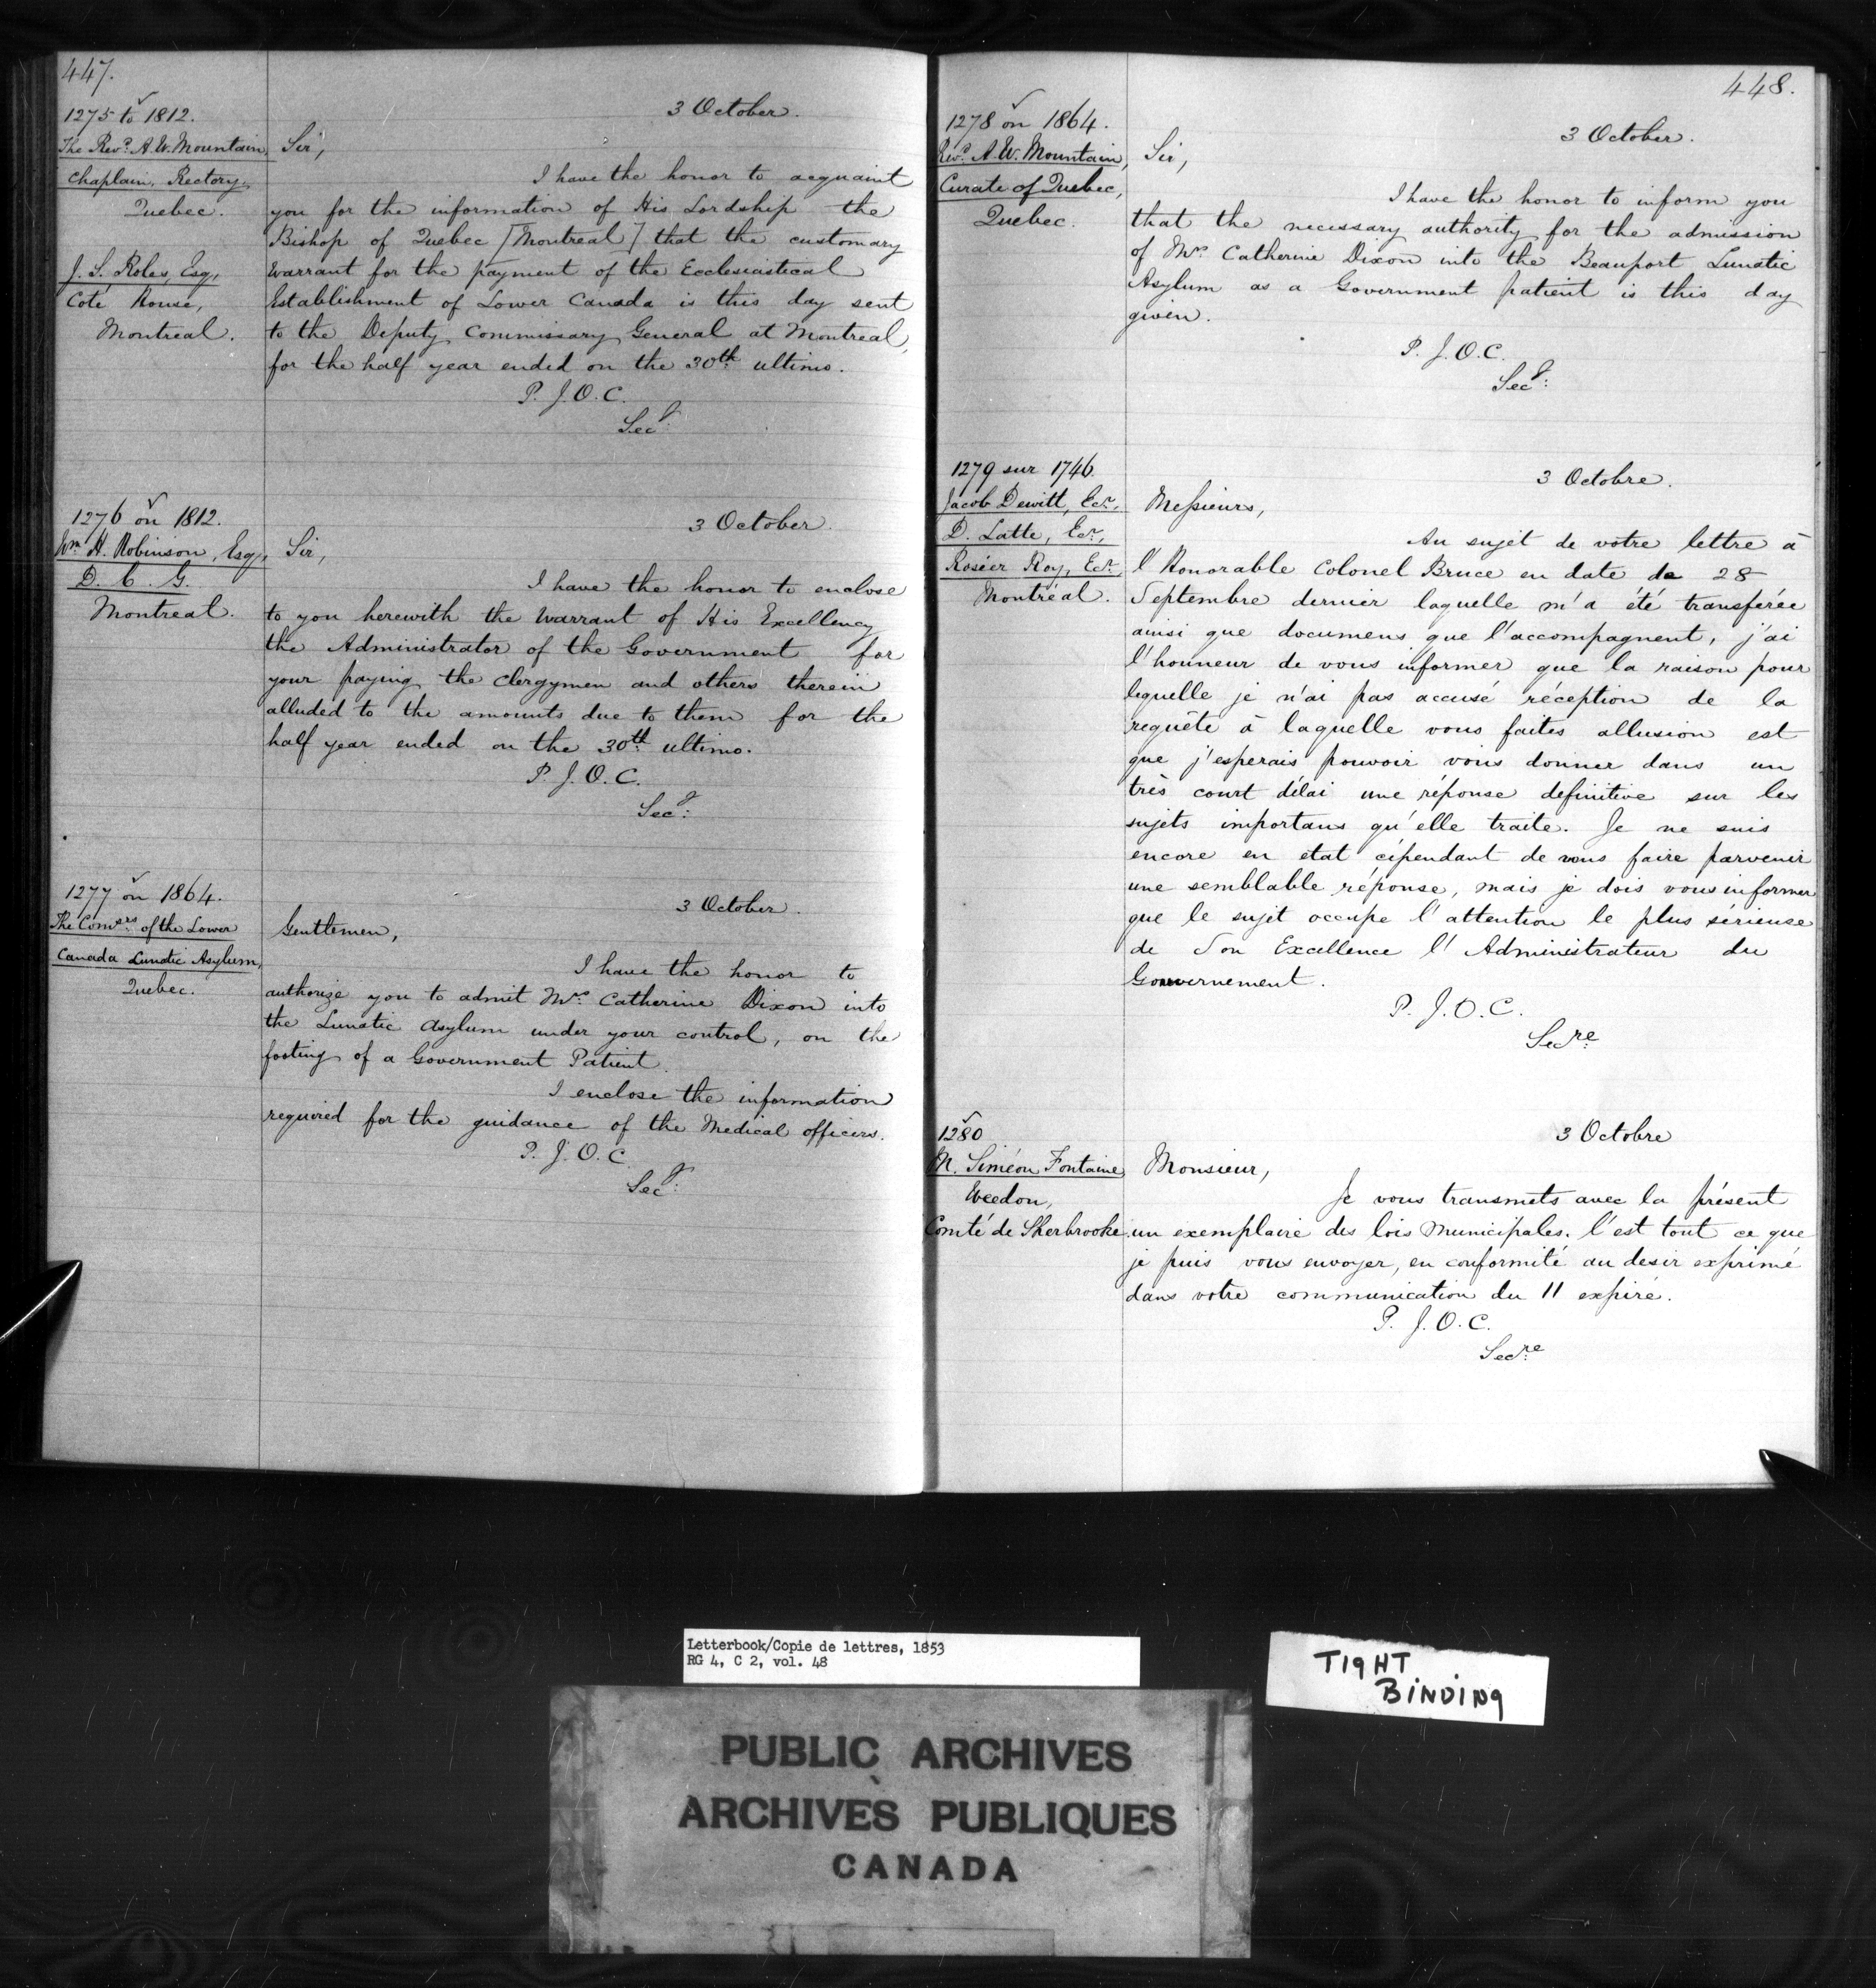 447.
1275 to 1812.
The Revd. A. W. Mountain,
Chaplain, Rectory,
Quebec.
J. S. Roles, Esq,
Coté House,
Montreal.
3 October.
Sir,
I have the honor to acquaint
you for the information of His Lordship the
Bishop of Quebec [Montreal] that the customary
Warrant for the payment of the Ecclesiastical
Establishment of Lower Canada is this day sent
to the Deputy Commissary General at Montreal,
for the half year ended on the 30th ultimo.
P. J. O. C.
Secy:
1276 on 1812.
Wm H. Robinson, Esq,
D. C. G.
Montreal.
3 October.
Sir,
I have the honor to enclose
to you herewith the Warrant of His Excellency
the Administrator of the Government for
your paying the Clergymen and others therein
alluded to the amounts due to them for the
half year ended on the 30th ultimo.
P. J. O. C.
Secy:
1277 on 1864.
The Comsrs of the Lower
Canada Lunatic Asylum,
Quebec.
3 October.
Gentlemen,
I have the honor to
authorize you to admit Mrs. Catherine Dixon into
the Lunatic Asylum under your control, on the
footing of a Government Patient.
I enclose the information
required for the guidance of the Medical officers.
P. J. O. C.
Secy:
448.
1278 on 1864.
Revd. A. W. Mountain,
Curate of Quebec,
Quebec.
3 October.
Sir,
I have the honor to inform you
that the necessary authority for the admission
of Mrs. Catherine Dixon into the Beauport Lunatic
Asylum as a Government patient is this day
given.
P. J. O. C.
Secy:
1279 sur 1746.
Jacob Dewitt, Ecr,
D. Latte, Ecr,
Roséer Roy, Ecr,
Montréal.
3 Octobre.
Messieurs,
Au sujet de votre lettre à
l'Honorable Colonel Bruce en date de 28
Septembre dernier laquelle m'a été transferée
ainsi que documens que l'accompagnent, j'ai
l'honneur de vous informer que la raison pour
lequelle je n'ai pas accusé réception de la
requête à laquelle vous faites allusion est
que j'esperais pouvoir vous donner dans un
très court délai une réponse definitive sur les
sujets importans qu'elle traite. Je ne suis
encore en etat cépendant de vous faire parvenir
une semblable réponse, mais je dois vous informer
que le sujet occupe l'attention le plus sérieuse
de Son Excellence l'Administrateur du
Gouvernement.
P. J. O. C.
Secre
1280
M. Siméon Fontaine,
Weedon,
Comté de Sherbrooke.
3 Octobre
Monsieur,
Je vous transmets avec la présent
un exemplaire des lois Municipales. C'est tout ce que
je puis vous envoyer, en conformité au desir exprimé
dans votre communication du 11 expiré.
P. J. O. C.
Secre
Letterbook/Copie de lettres, 1853
RG 4, C 2, vol. 48
TIGHT
BINDING
PUBLIC ARCHIVES
ARCHIVES PUBLIQUES
CANADA